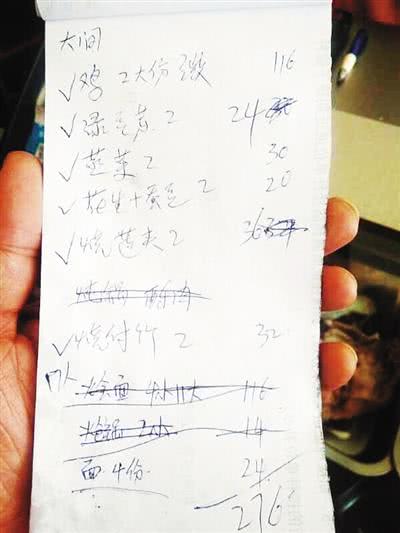 大间
√鸡 2大份 116
√绿豆 2 24
√蒸菜 2 30
√花生+蚕豆 2 20
√烧莲夹 2 36
√烧付竹 2 32
116
14
面 4份 24
276